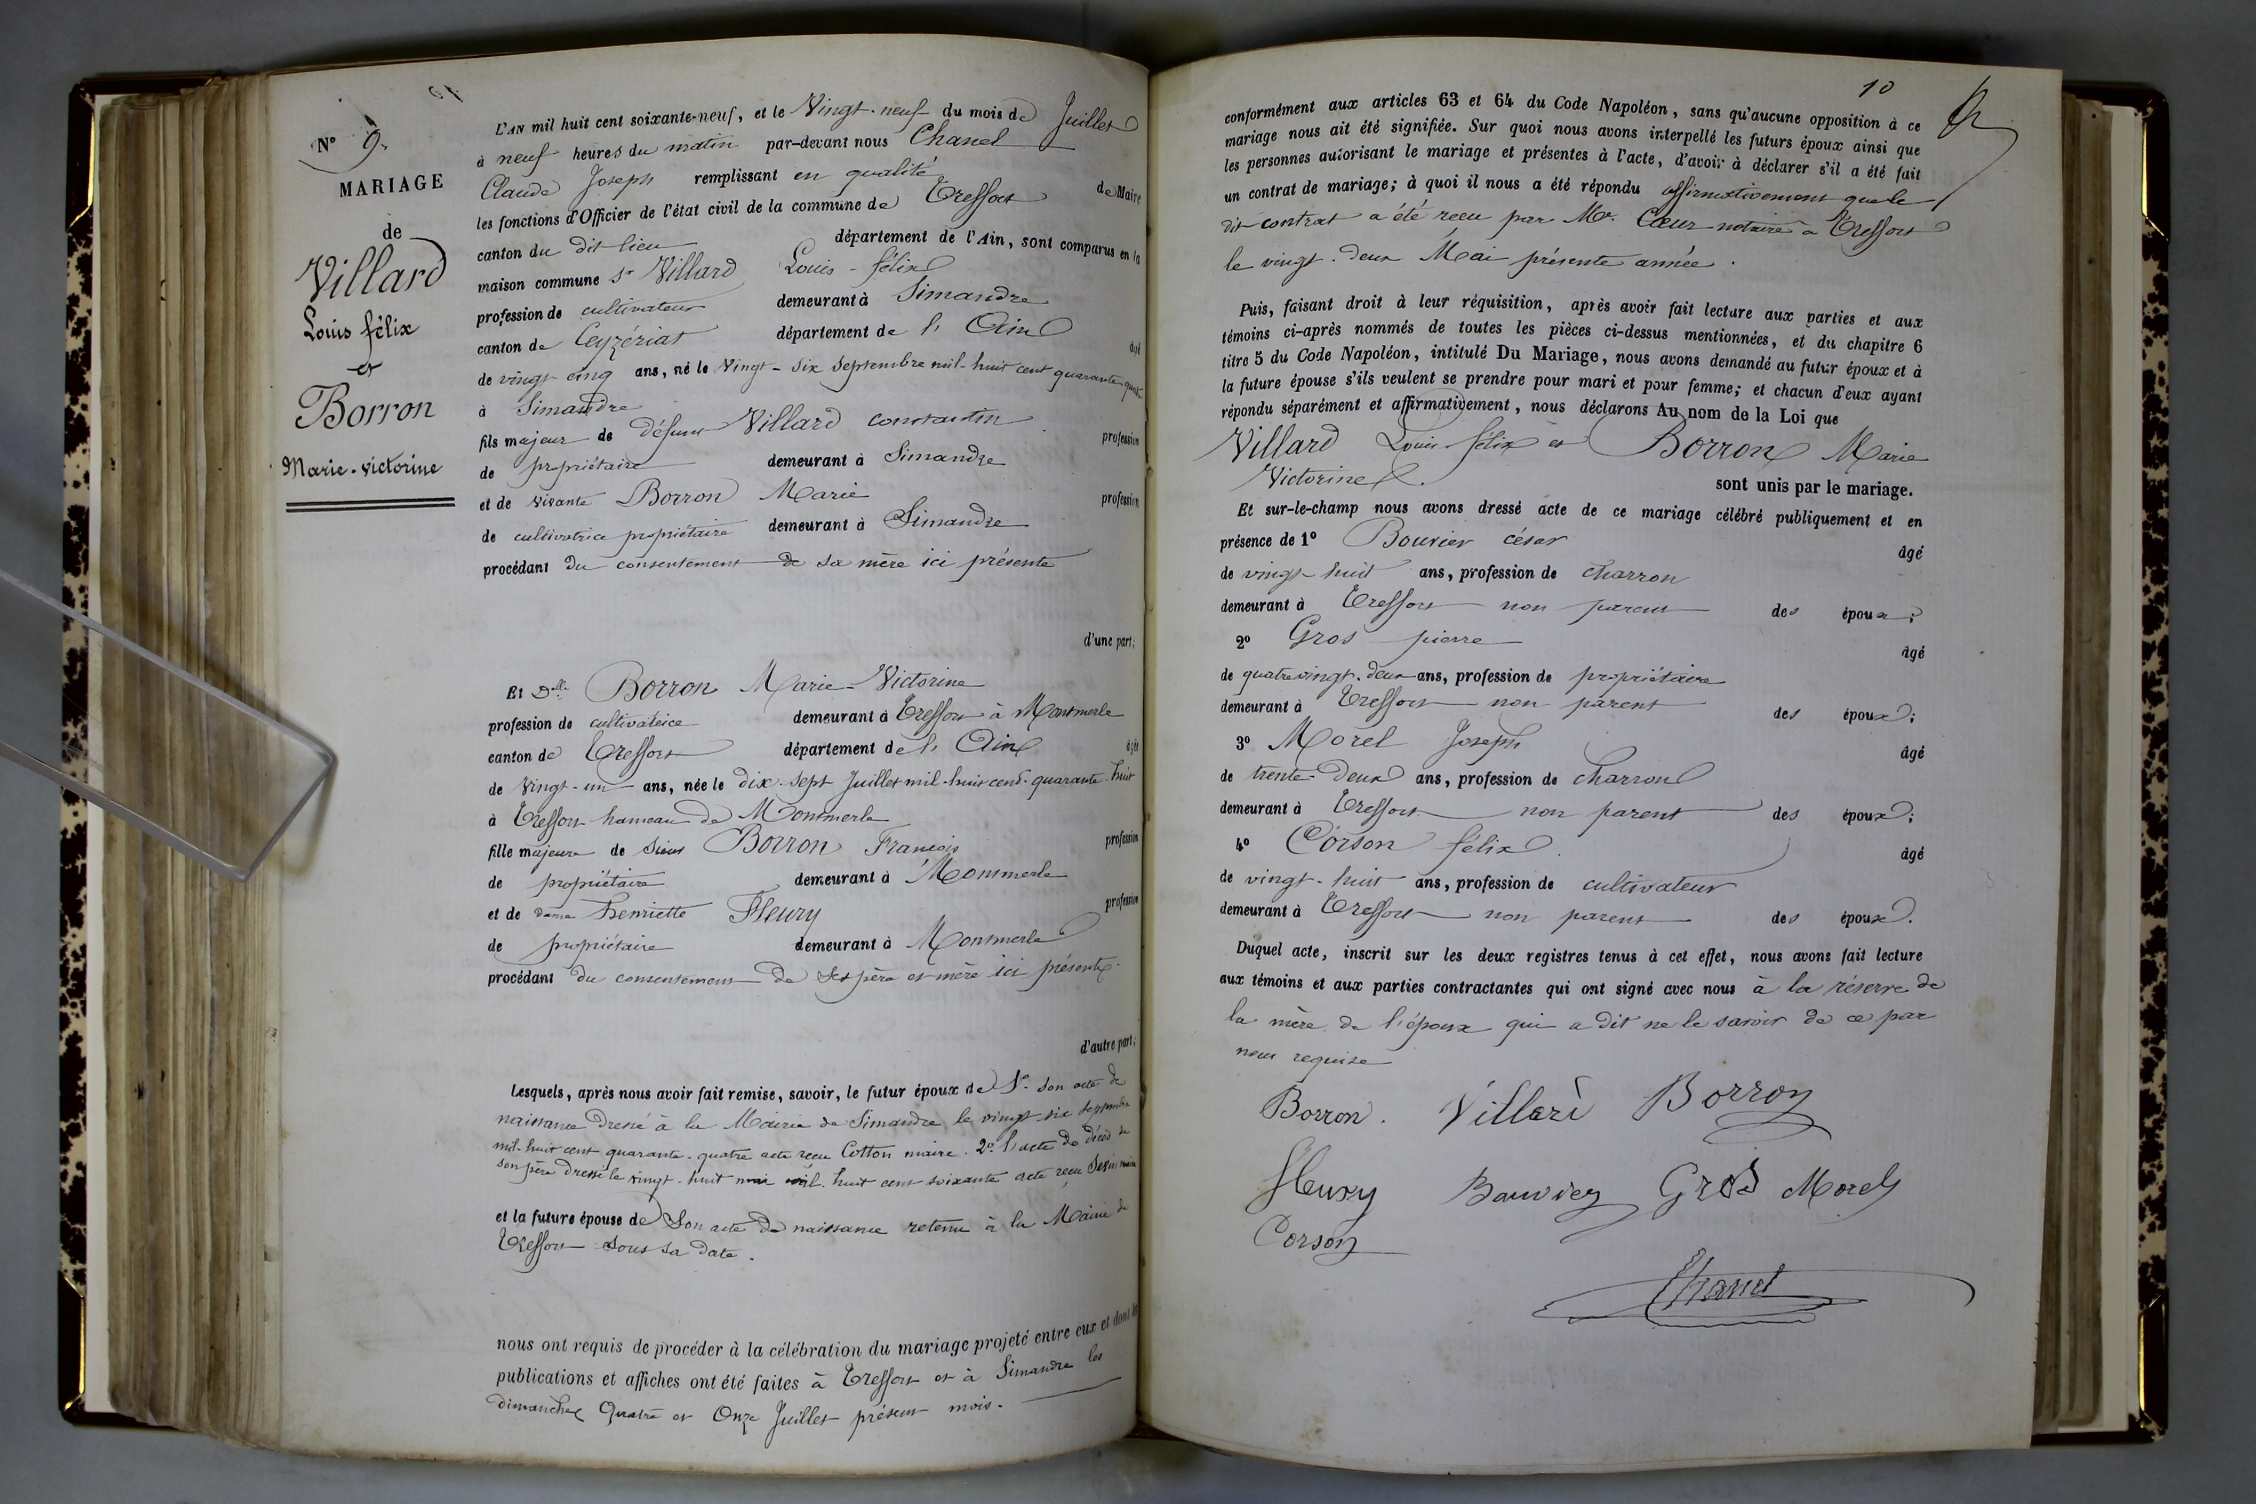 N° 9.
MARIAGE
de
Villard
Louis félix
et
Borron
Marie-victorine
L'AN mil huit cent soixante-neuf, et le Vingt-neuf du mois de Juillet
à neuf heures du matin par-devant nous Chanel
Claude Joseph remplissant en qualité de Maire
les fonctions d'Officier de l'état civil de la commune de Treffort
canton du dit lieu département de l'Ain, sont comparus en la
maison commune Sr Villard Louis-félix
profession de cultivateur demeurant à Simandre
canton de Ceyzériat département de l'Ain âgé
de vingt cinq ans, né le Vingt-six Septembre mil-huit cent quarante quatre
à Simandre
fils majeur de défunt Villard constantin profession
de propriétaire demeurant à Simandre
et de vivante Borron Marie profession
de cultivatrice propriétaire demeurant à Simandre
procédant du consentement de sa mère ici présente
d'une part;
Et Delle Borron Marie-Victorine
profession de cultivatrice demeurant à Treffort à Montmerle
canton de Treffort département de l'Ain âgée
de Vingt-un ans, née le dix-sept Juillet mil-huit cent-quarante-huit
à Treffort hameau de Montmerle
fille majeure de Sieur Borron François profession
de propriétaire demeurant à Montmerle
et de dame henriette Fleury profession
de propriétaire demeurant à Montmerle
procédant du consentement de ses père et mère ici présents
d'autre part;
Lesquels, après nous avoir fait remise, savoir, le futur époux de 1° son acte de
naissance dressé à la Mairie de Simandre le vingt six septembre
mil-huit cent quarante-quatre acte reçu Cotton maire. 2° l'acte de décès de
son père dressé le vingt-huit mai mil-huit cent soixante acte reçu maire
et la future épouse de Son acte de naissance retenu à la Mairie de
Treffort sous sa date.
nous ont requis de procéder à la célébration du mariage projeté entre eux et dont les
publications et affiches ont été faites à Treffort et à Simandre les
dimanches Quatre et Onze Juillet présent mois.
10
conformément aux articles 63 et 64 du Code Napoléon, sans qu'aucune opposition à ce
mariage nous ait été signifiée. Sur quoi nous avons interpellé les futurs époux ainsi que
les personnes autorisant le mariage et présentes à l'acte, d'avoir à déclarer s'il a été fait
un contrat de mariage; à quoi il nous a été répondu affirmativement que le
dit contrat a été reçu par Me. Cœur notaire à Treffort
le vingt-deux Mai présente année.
Puis, faisant droit à leur réquisition, après avoir fait lecture aux parties et aux
témoins ci-après nommés de toutes les pièces ci-dessus mentionnées, et du chapitre 6
titre 5 du Code Napoléon, intitulé Du Mariage, nous avons demandé au futur époux et à
la future épouse s'ils veulent se prendre pour mari et pour femme; et chacun d'eux ayant
répondu séparément et affirmativement, nous déclarons Au nom de la Loi que
Villard Louis-félix et Borron Marie
Victorine.
sont unis par le mariage.
Et sur-le-champ nous avons dressé acte de ce mariage célébré publiquement et en
présence de 1° Bouvier césar âgé
de vingt-huit ans, profession de charron
demeurant à Treffort non parent des époux;
2° Gros pierre âgé
de quatrevingt-deux ans, profession de propriétaire
demeurant à Treffort non parent des époux;
3° Morel Joseph âgé
de trente-deux ans, profession de charron
demeurant à Treffort non parent des époux;
4° Corson félix âgé
de vingt-huit ans, profession de cultivateur
demeurant à Treffort non parent des époux.
Duquel acte, inscrit sur les deux registres tenus à cet effet, nous avons fait lecture
aux témoins et aux parties contractantes qui ont signé avec nous à la réserve de
la mère de l'époux qui a dit ne le savoir de ce par
nous requise
Borron. Villard Borron
Fleury Bouvier Gros Morel
Corson
Chanel